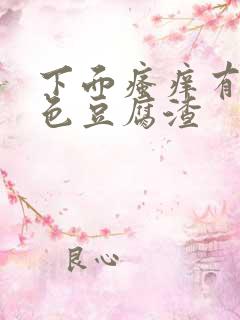 下面瘙痒有
色豆腐渣
良心